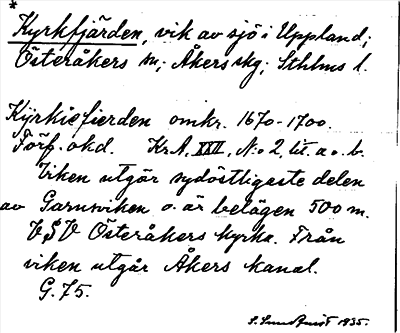 *
Kyrkfjärden, vik av sjö i Uppland;
Österåkers sn; Åkers skg; Sthlms l.
Kÿrkiefierden omkr. 1670-1700.
Förf. okd. Kr.A, XXII, N:o 2, lit. a o. b.
Viken utgör sydöstligaste delen
av Garnsviken o. är belägen 500 m.
VSV Österåkers kyrka. Från
viken utgår Åkers kanal.
G. 75.
1935.